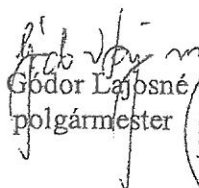 Gódor Lajosné
polgármester